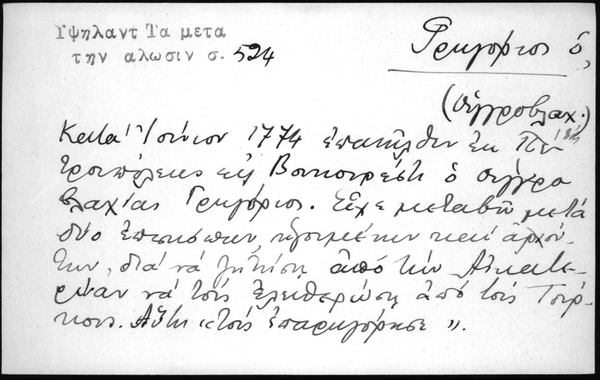 Υψηλαντ Τα μετα
την αλωσιν σ. 524
Γρηγόριος ὁ
(Οὑγγροβλαχ.)
Κατά Ἰούνιον 1774 ἐπανῆλθεν ἐκ Πε-
τρουπόλεως εἰς Βουκουρέστι ὁ Οὑγγρο
βλαχίας Γρηγόριος. Εἶχε μεταβῆ μετά
δύο ἐπισκόπων, ἡγουμένων καί ἀρχόν-
των, διά νά ζητήσῃ ἀπό τήν Αἰκατε-
ρίναν νά τούς ἐλευθερώσῃ ἀπό τούς Τούρ-
κους. Αὕτη «τούς ἐπαρηγόρησε».